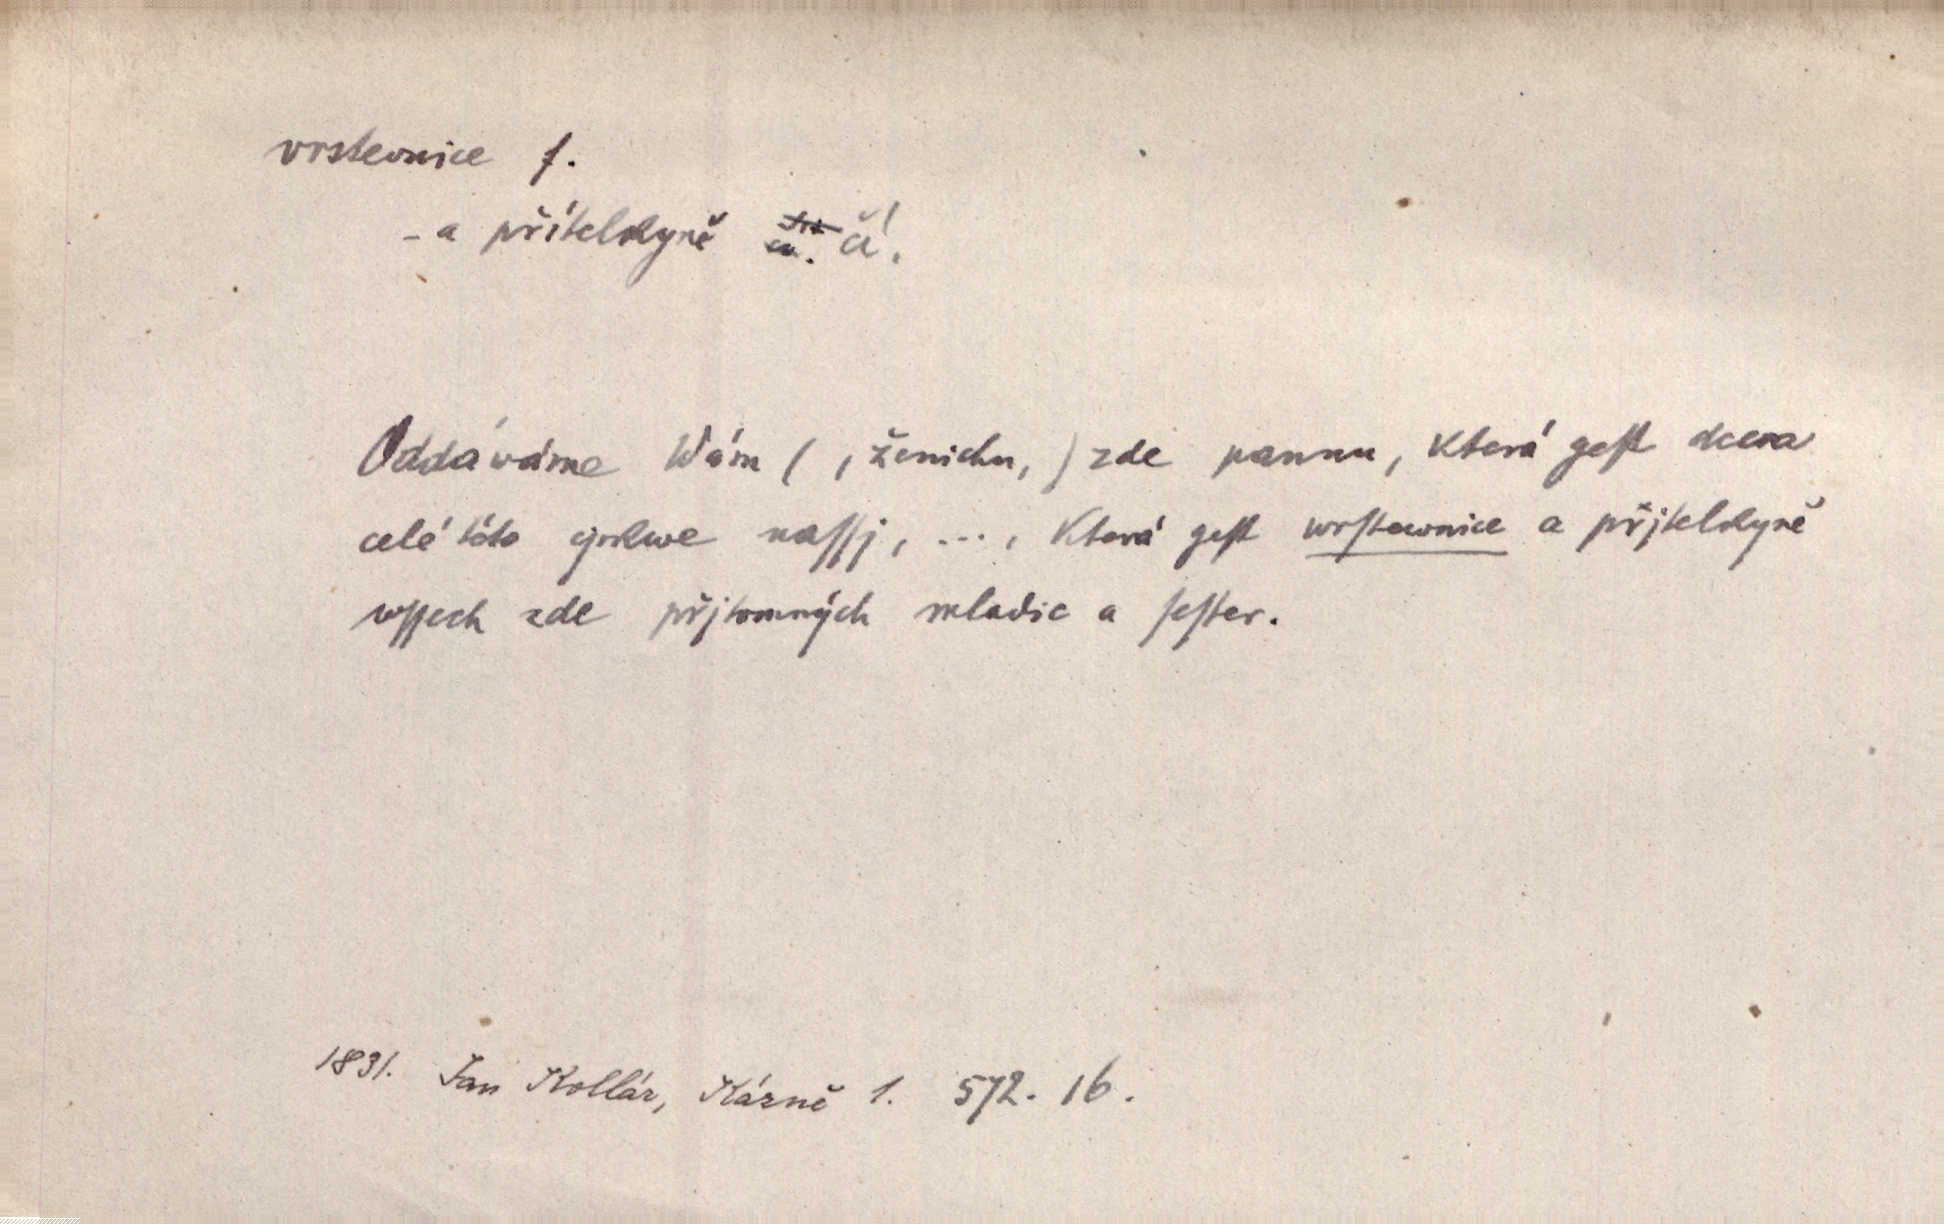 vrstevnice f.
- a přítelkyně čí.
Oddáváme Wám (, ženichu, ) zde pannu, která geſt dcera
celé této cýrkwe naſſj, ..., která geſt wrſtewnice a přjtelkyně
wſſech zde přjtomných mladic a ſeſter.
1831. Jan Kollár, Kázně 1. 572. 16.